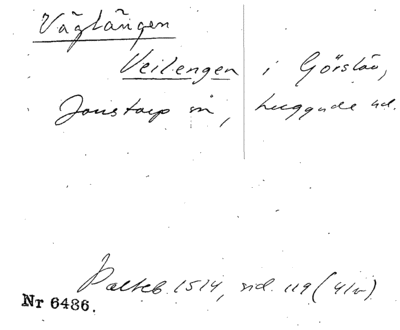 Väglängen
Veilengen i Görslöv,
Jonstorp sn, Luggude hd.
Palteb. 1514, sid. 119 (41v)
Nr 6436.